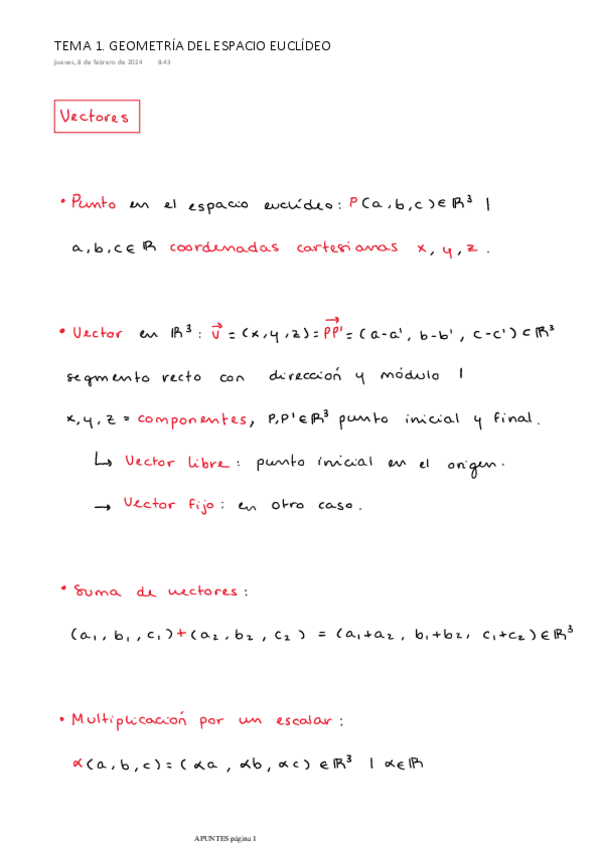 TEMA 1. GEOMETRÍA DEL ESPACIO EUCLÍDEO
jueves, 8 de febrero de 2024 8:43
Vectores
• Punto en el espacio euclídeo: P(a,b,c) ∈ ℝ³ |
a,b,c ∈ ℝ coordenadas cartesianas x, y, z.
• Vector en ℝ³: v⃗ = (x,y,z) = PP'⃗ = (a-a', b-b', c-c') ⊂ ℝ³
segmento recto con dirección y módulo |
x,y,z = componentes, P,P' ∈ ℝ³ punto inicial y final.
↳ Vector libre: punto inicial en el origen.
→ Vector fijo: en otro caso.
• Suma de vectores:
(a₁, b₁, c₁)+(a₂, b₂, c₂) = (a₁+a₂, b₁+b₂, c₁+c₂) ∈ ℝ³
• Multiplicación por un escalar:
α(a,b,c) = (αa, αb, αc) ∈ ℝ³ | α∈ℝ
APUNTES página 1